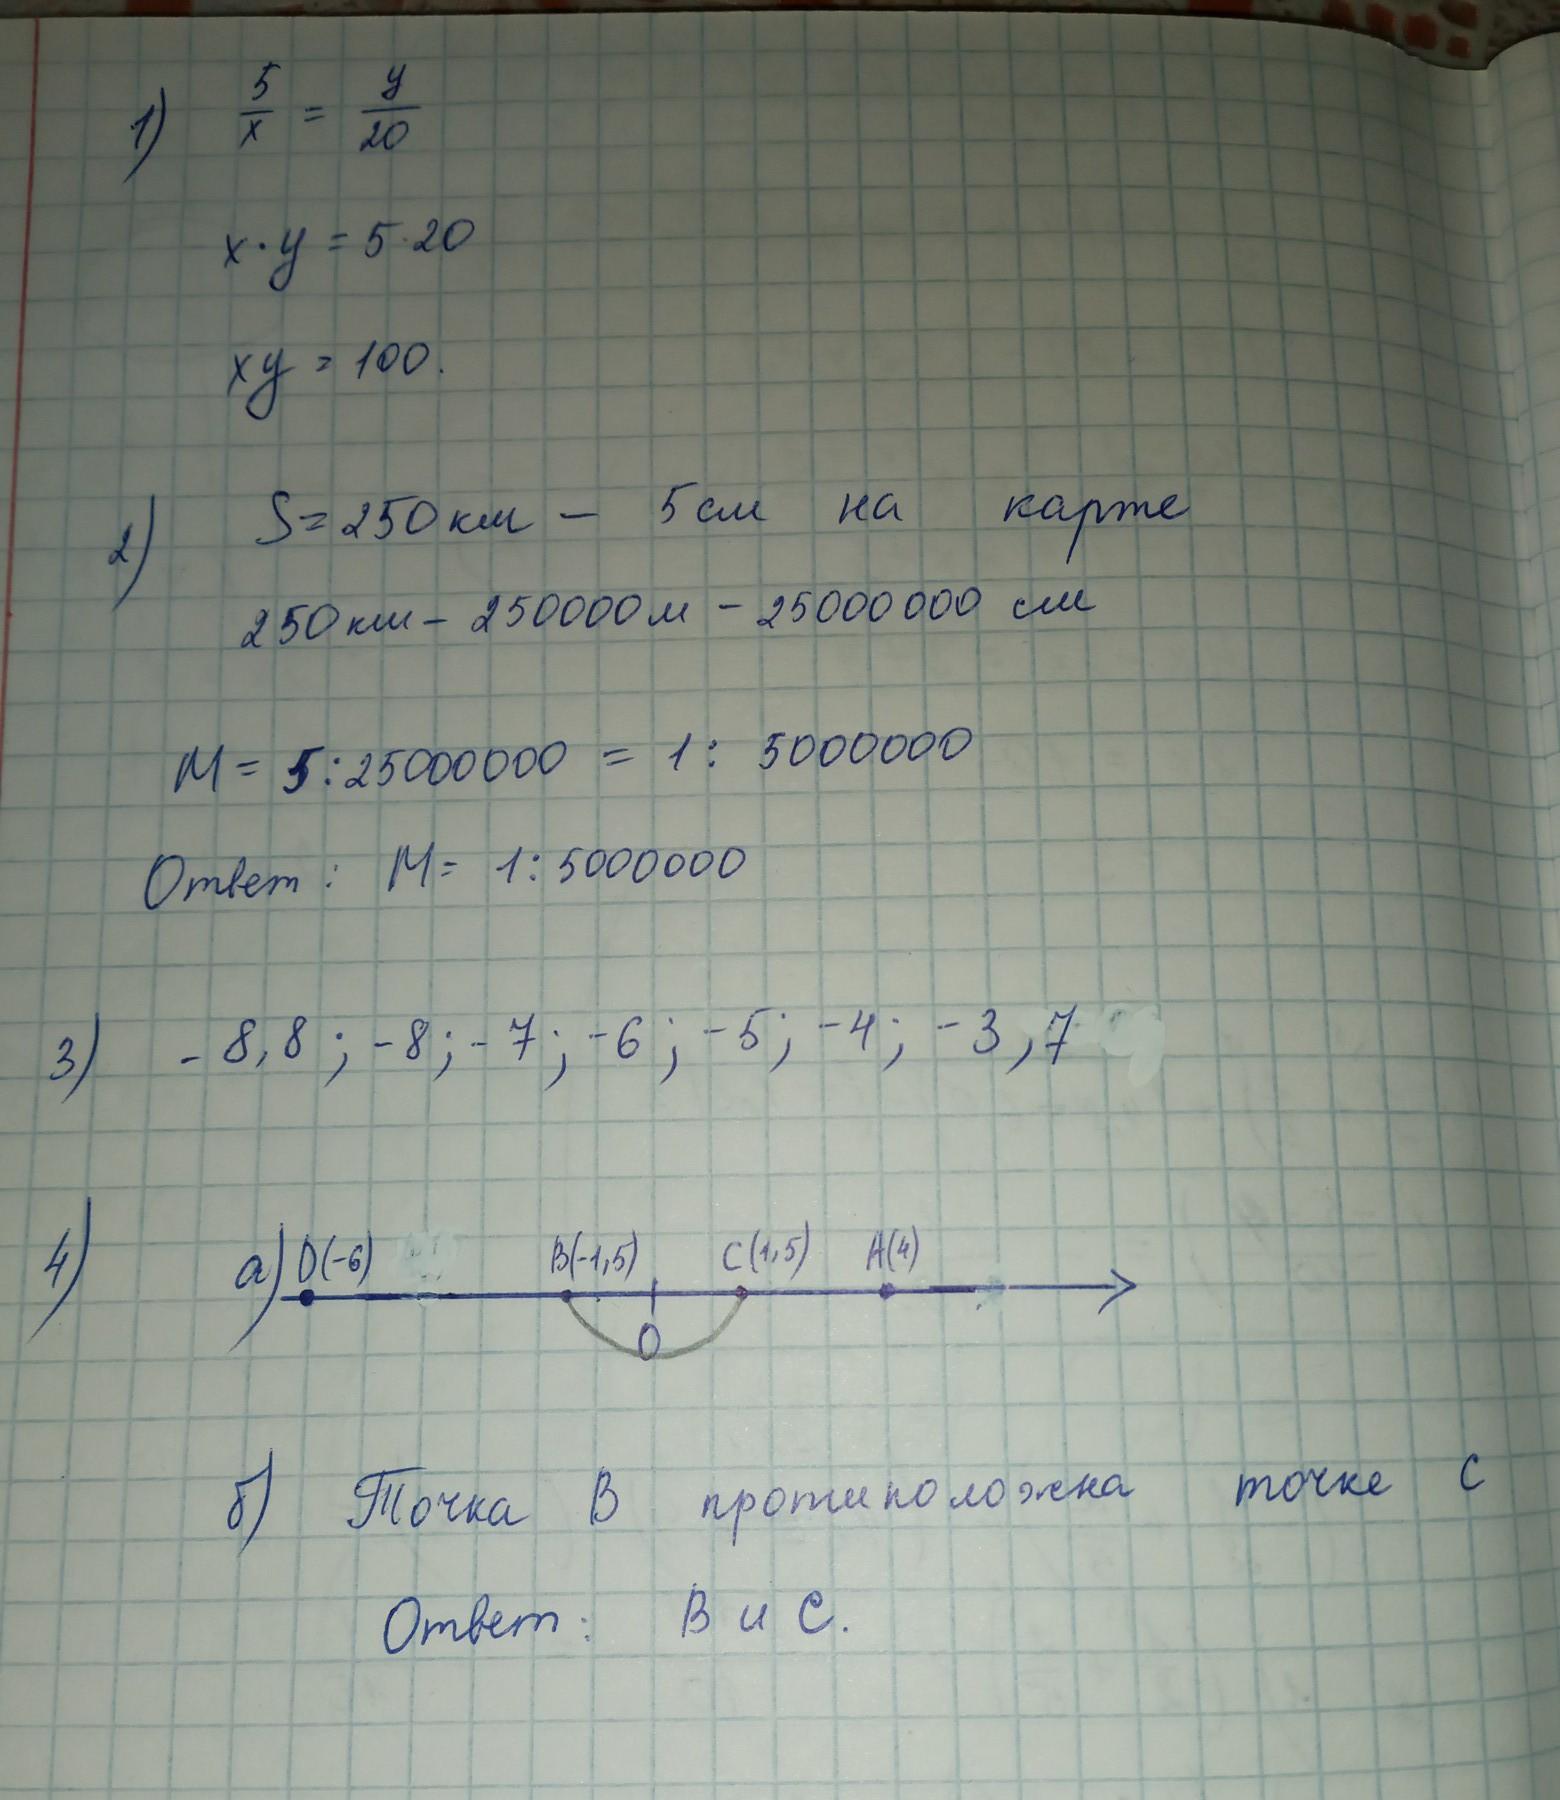 1) 5/x = y/20
x·y = 5·20
xy = 100.
2) S = 250 км – 5 см на карте
250 км – 250000 м – 25000000 см
М = 5:25000000 = 1: 5000000
Ответ: М = 1:5000000
3) -8,8; -8; -7; -6; -5; -4; -3,7
4) а) D(-6) B(-1,5) C(1,5) A(4)
0
б) Точка В противоложна точке С
Ответ: В и С.